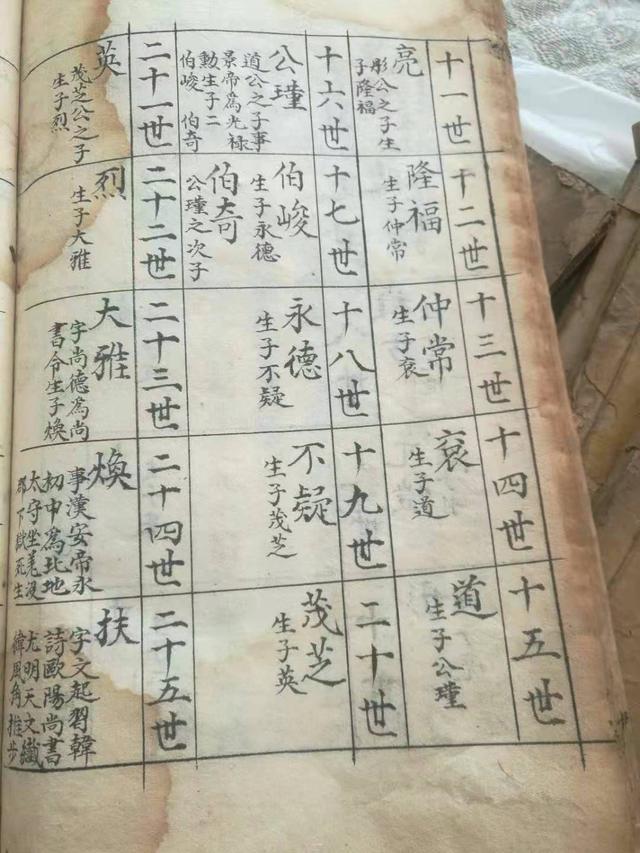 十一世
亮
彤公之子生
子隆福
十二世
隆福
生子仲常
十三世
仲常
生子袞
十四世
袞
生子道
十五世
道
生子公瑾
十六世
公瑾
道公之子事
景帝爲光禄
勳生子二
伯峻 伯奇
十七世
伯峻
生子永德
伯奇
公瑾之次子
十八世
永德
生子不疑
十九世
不疑
生子茂芝
二十世
茂芝
生子英
二十一世
英
茂芝公之子
生子烈
二十二世
烈
生子大雅
二十三世
大雅
字尚德爲尚
書令生子煥
二十四世
煥
事漢安帝永
初中爲北地
太守坐羌没
郡下獄死生
二十五世
扶
字文起習韓
詩歐陽尚書
尤明天文纖
緯風角推步